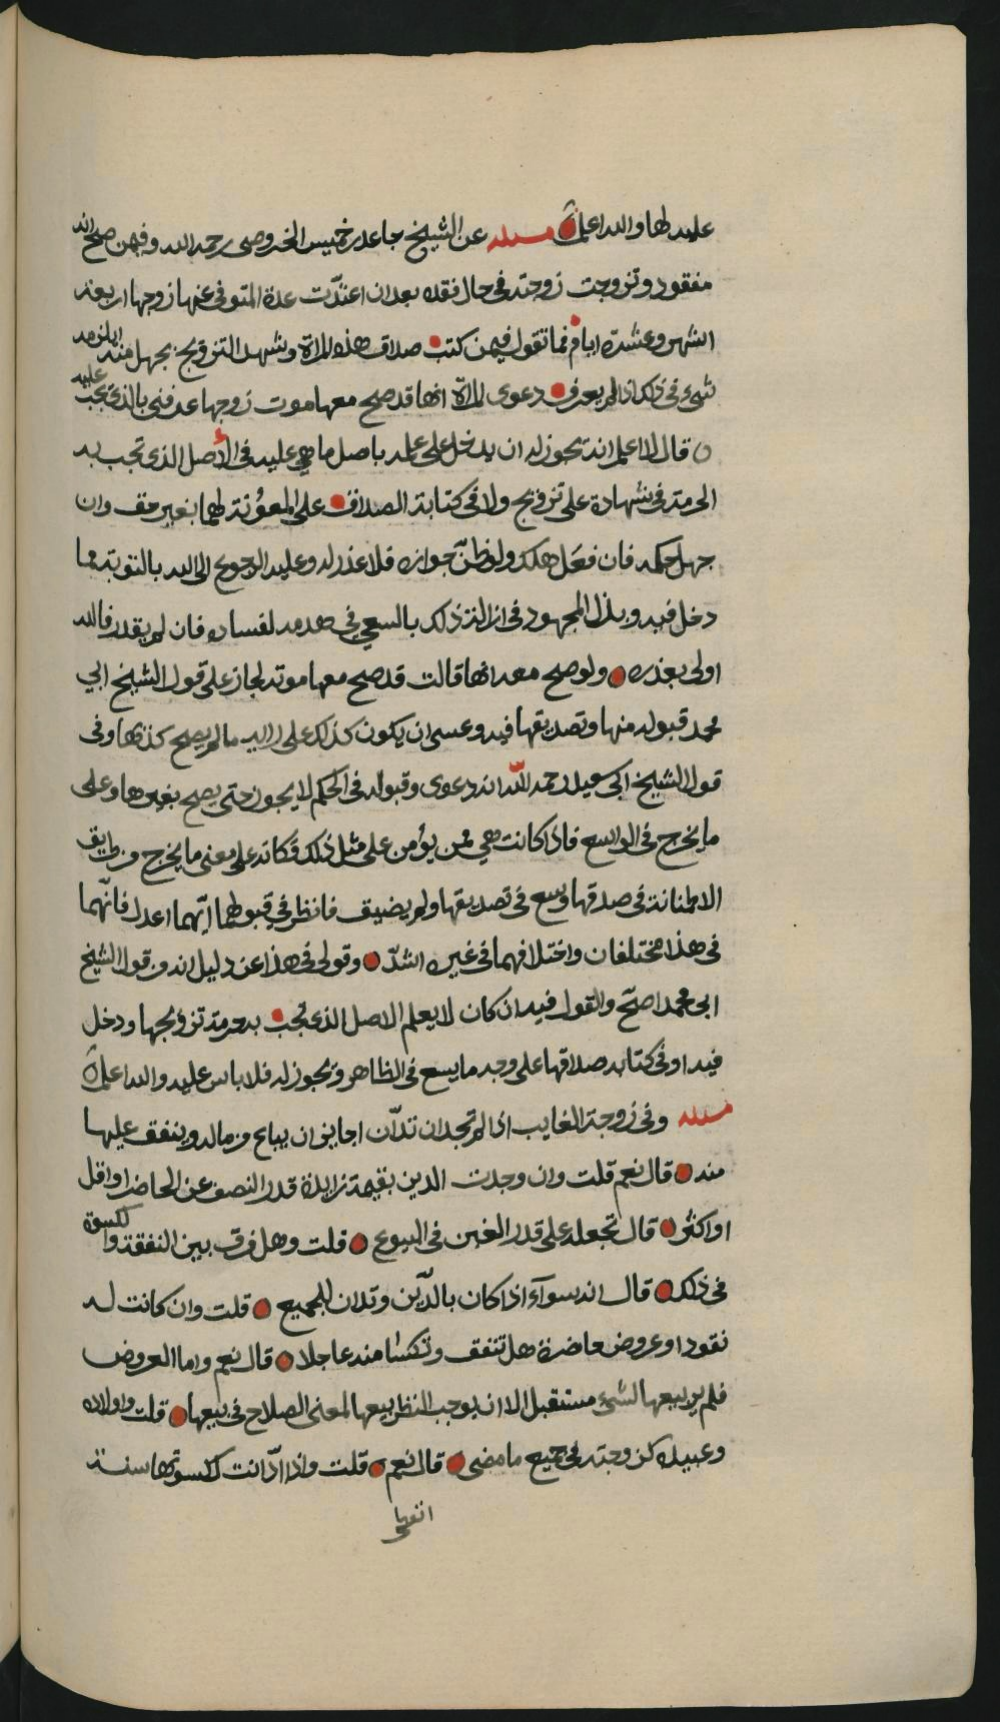 عليه لها والله اعلم مسئلة عن الشيخ جاعد بن خميس الخروصي رحمه الله وفيمن صح انه
مفقود وتزوجت زوجته في حال فقده بعد ان اعتدّت عدة المتوفى عنها زوجها اربعة
اشهر وعشرة ايام فما تقول فيمن كتب صداق هذه المراة وشهد التزويج بجهل منه ايلزمه
شيء في ذلك اذا لم يعرف دعوى المراة انها قد صح معها موت زوجها عرفني بالذي يجب عليه
قال لا اعلم انه يجوز له ان يدخل على علمه باصل ما هي عليه في الأصل الذي تجب به
الحرمة في شهادة على تزويج ولا في كتابة الصداق على المعونة لهما بغير حق وان
جهل حكمه فان فعل هلك ولو ظنّ جوازه فلا عذر له وعليه الرجوع الى الله بالتوبة مما
دخل فيه وبذل المجهود في ازالة ذلك بالسعي في هدمه لفساده فان لم يقدر فالله
اولى بعذره ولو صح معه انها قالت قد صح معها موته لجاز على قول الشيخ ابي
محمد قبوله منها وتصديقها فيه وعسى ان يكون كذلك على رايه ما لم يصح كذبها وفي
قول الشيخ ابي سعيد رحمه الله انه دعوى وقبوله في الحكم لا يجوز حتى يصح بغيرها وعلى
ما يخرج في الواسع فاذا كانت هي ممن يؤمن على مثل ذلك فكانه على معنى ما يخرج من طريق
الاطمئنانة في صدقها وسع في تصديقها ولم يضيق فانظر في قبولهما ايّهما اعدل فانّهما
في هذا مختلفان واختلافهما في غيره اشدّ وقولي في هذا عن دليل انه من قول الشيخ
ابي محمد اصحّ والقول فيه ان كان لا يعلم الاصل الذي تجب به حرمة تزويجها ودخل
فيه او في كتابه صداقها على وجه ما يسع في الظاهر ويجوز له فلا باس عليه والله اعلم
مسئلة وفي زوجة الغايب اذا لم تجد ان تدّان اجايز ان يباع من ماله وينفق عليها
منه قال نعم قلت وان وجدت الدين بقيمة زايدة قدر النصف عن الحاضر او اقل
او اكثر قال تجعله على قدر الغبن في البيوع قلت وهل فرق بين النفقة والكسوة
في ذلك قال انه سوآء اذا كان بالدّين وتدان للجميع قلت وان كانت له
نقود او عروض حاضرة هل تنفق وتكسا منه عاجلا قال نعم واما العروض
فلم ير بيعها لشيء مستقبل الا ان يوجب النظر بيعها لمعنى الصلاح في بيعها قلت واولاده
وعبيده كزوجته في جميع ما مضى قال نعم قلت واذا ادّانت لكسوتها سنة
انفها